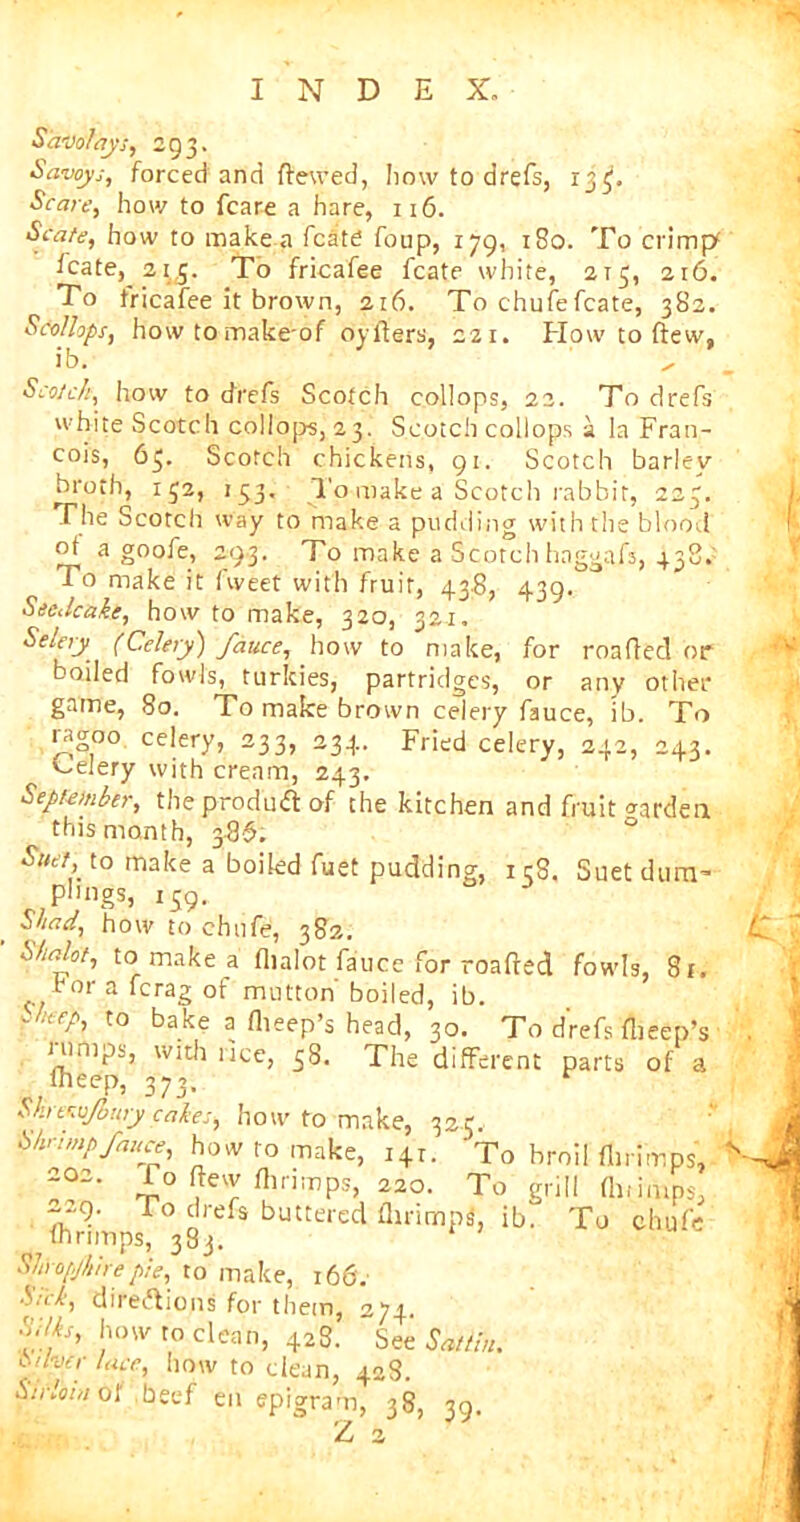 INDEX.
Savolays, 293.
Savoys, forced and ſtewed, how to dreſs, 135.
Scare, how to ſcare a hare, 116.
Scate, how to make a ſcate ſoup, 179, 180. To crimp
ſcate, 215. To fricaſee ſcate white, 215, 216.
To fricaſee it brown, 216. To chuſe ſcate, 382.
Scollops, how to make of oyſters, 221. How to ſtew,
ib.
Scotch, how to dreſs Scotch collops, 22. To dreſs
white Scotch collops, 23. Scotch collops à la Fran-
cois, 65. Scotch chickens, 91. Scotch barley
broth, 152, 153. To make a Scotch rabbit, 225.
The Scotch way to make a pudding with the blood
of a gooſe, 293. To make a Scotch haggaſs, 438.
To make it ſweet with fruit, 438, 439.
Seedcake, how to make, 320, 321.
Selery (Celery) ſauce, how to make, for roaſted or
boiled fowls, turkies, partridges, or any other
game, 80. To make brown celery ſauce, ib. To
ragoo celery, 233, 234. Fried celery, 242, 243.
Celery with cream, 243.
September, the product of the kitchen and fruit garden
this month, 386.
Suet, to make a boiled ſuet pudding, 158. Suet dum-
plings, 159.
Shad, how to chuſe, 382.
Shalot, to make a ſhalot ſauce for roaſted fowls, 81.
For a ſcrag of mutton boiled, ib.
Sheep, to bake a ſheep's head, 30. To dreſs ſheep's
rumps, with rice, 58. The different parts of a
ſheep, 373.
Shrewſbury cakes, how to make, 325.
Shrimp ſauce, how to make, 141. To broil ſhrimps,
202. To ſtew ſhrimps, 220. To grill ſhrimps,
229. To dreſs buttered ſhrimps, ib. To chuſe
ſhrimps, 383.
Shropſhire pie, to make, 166.
Sick, directions for them, 274.
Silks, how to clean, 428. See Sattin.
Silver lace, how to clean, 428.
Sirloin of beef en epigram, 38, 39.
Z 2